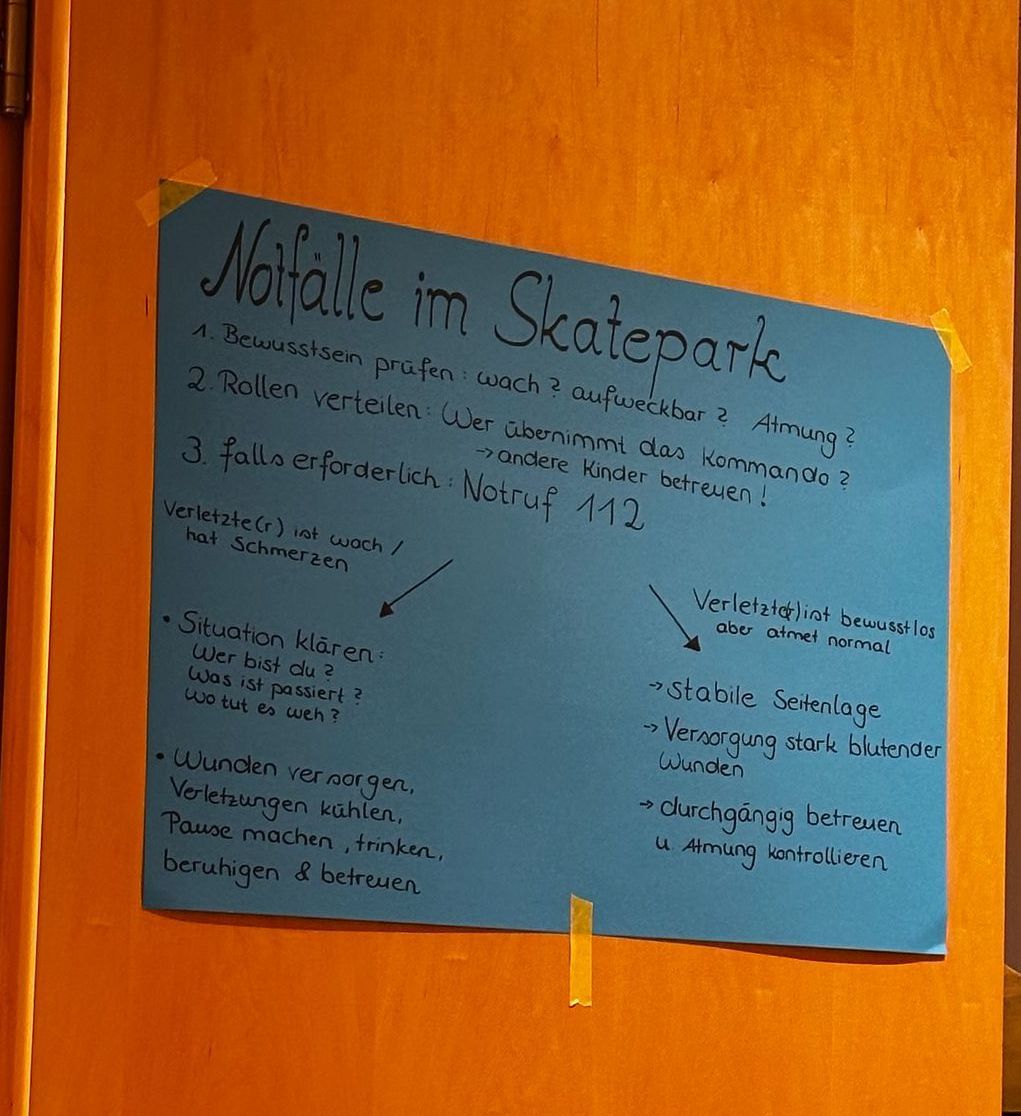 Notfälle im Skatepark
1. Bewusstsein prüfen: wach? aufweckbar? Atmung?
2. Rollen verteilen: Wer übernimmt das Kommando?
→ andere Kinder betreuen!
3. falls erforderlich: Notruf 112
Verletzte(r) ist wach /
hat Schmerzen
• Situation klären:
Wer bist du?
Was ist passiert?
Wo tut es weh?
• Wunden versorgen,
Verletzungen kühlen,
Pause machen, trinken,
beruhigen & betreuen
Verletzte(r) ist bewusstlos
aber atmet normal
→ stabile Seitenlage
→ Versorgung stark blutender
Wunden
→ durchgängig betreuen
u. Atmung kontrollieren